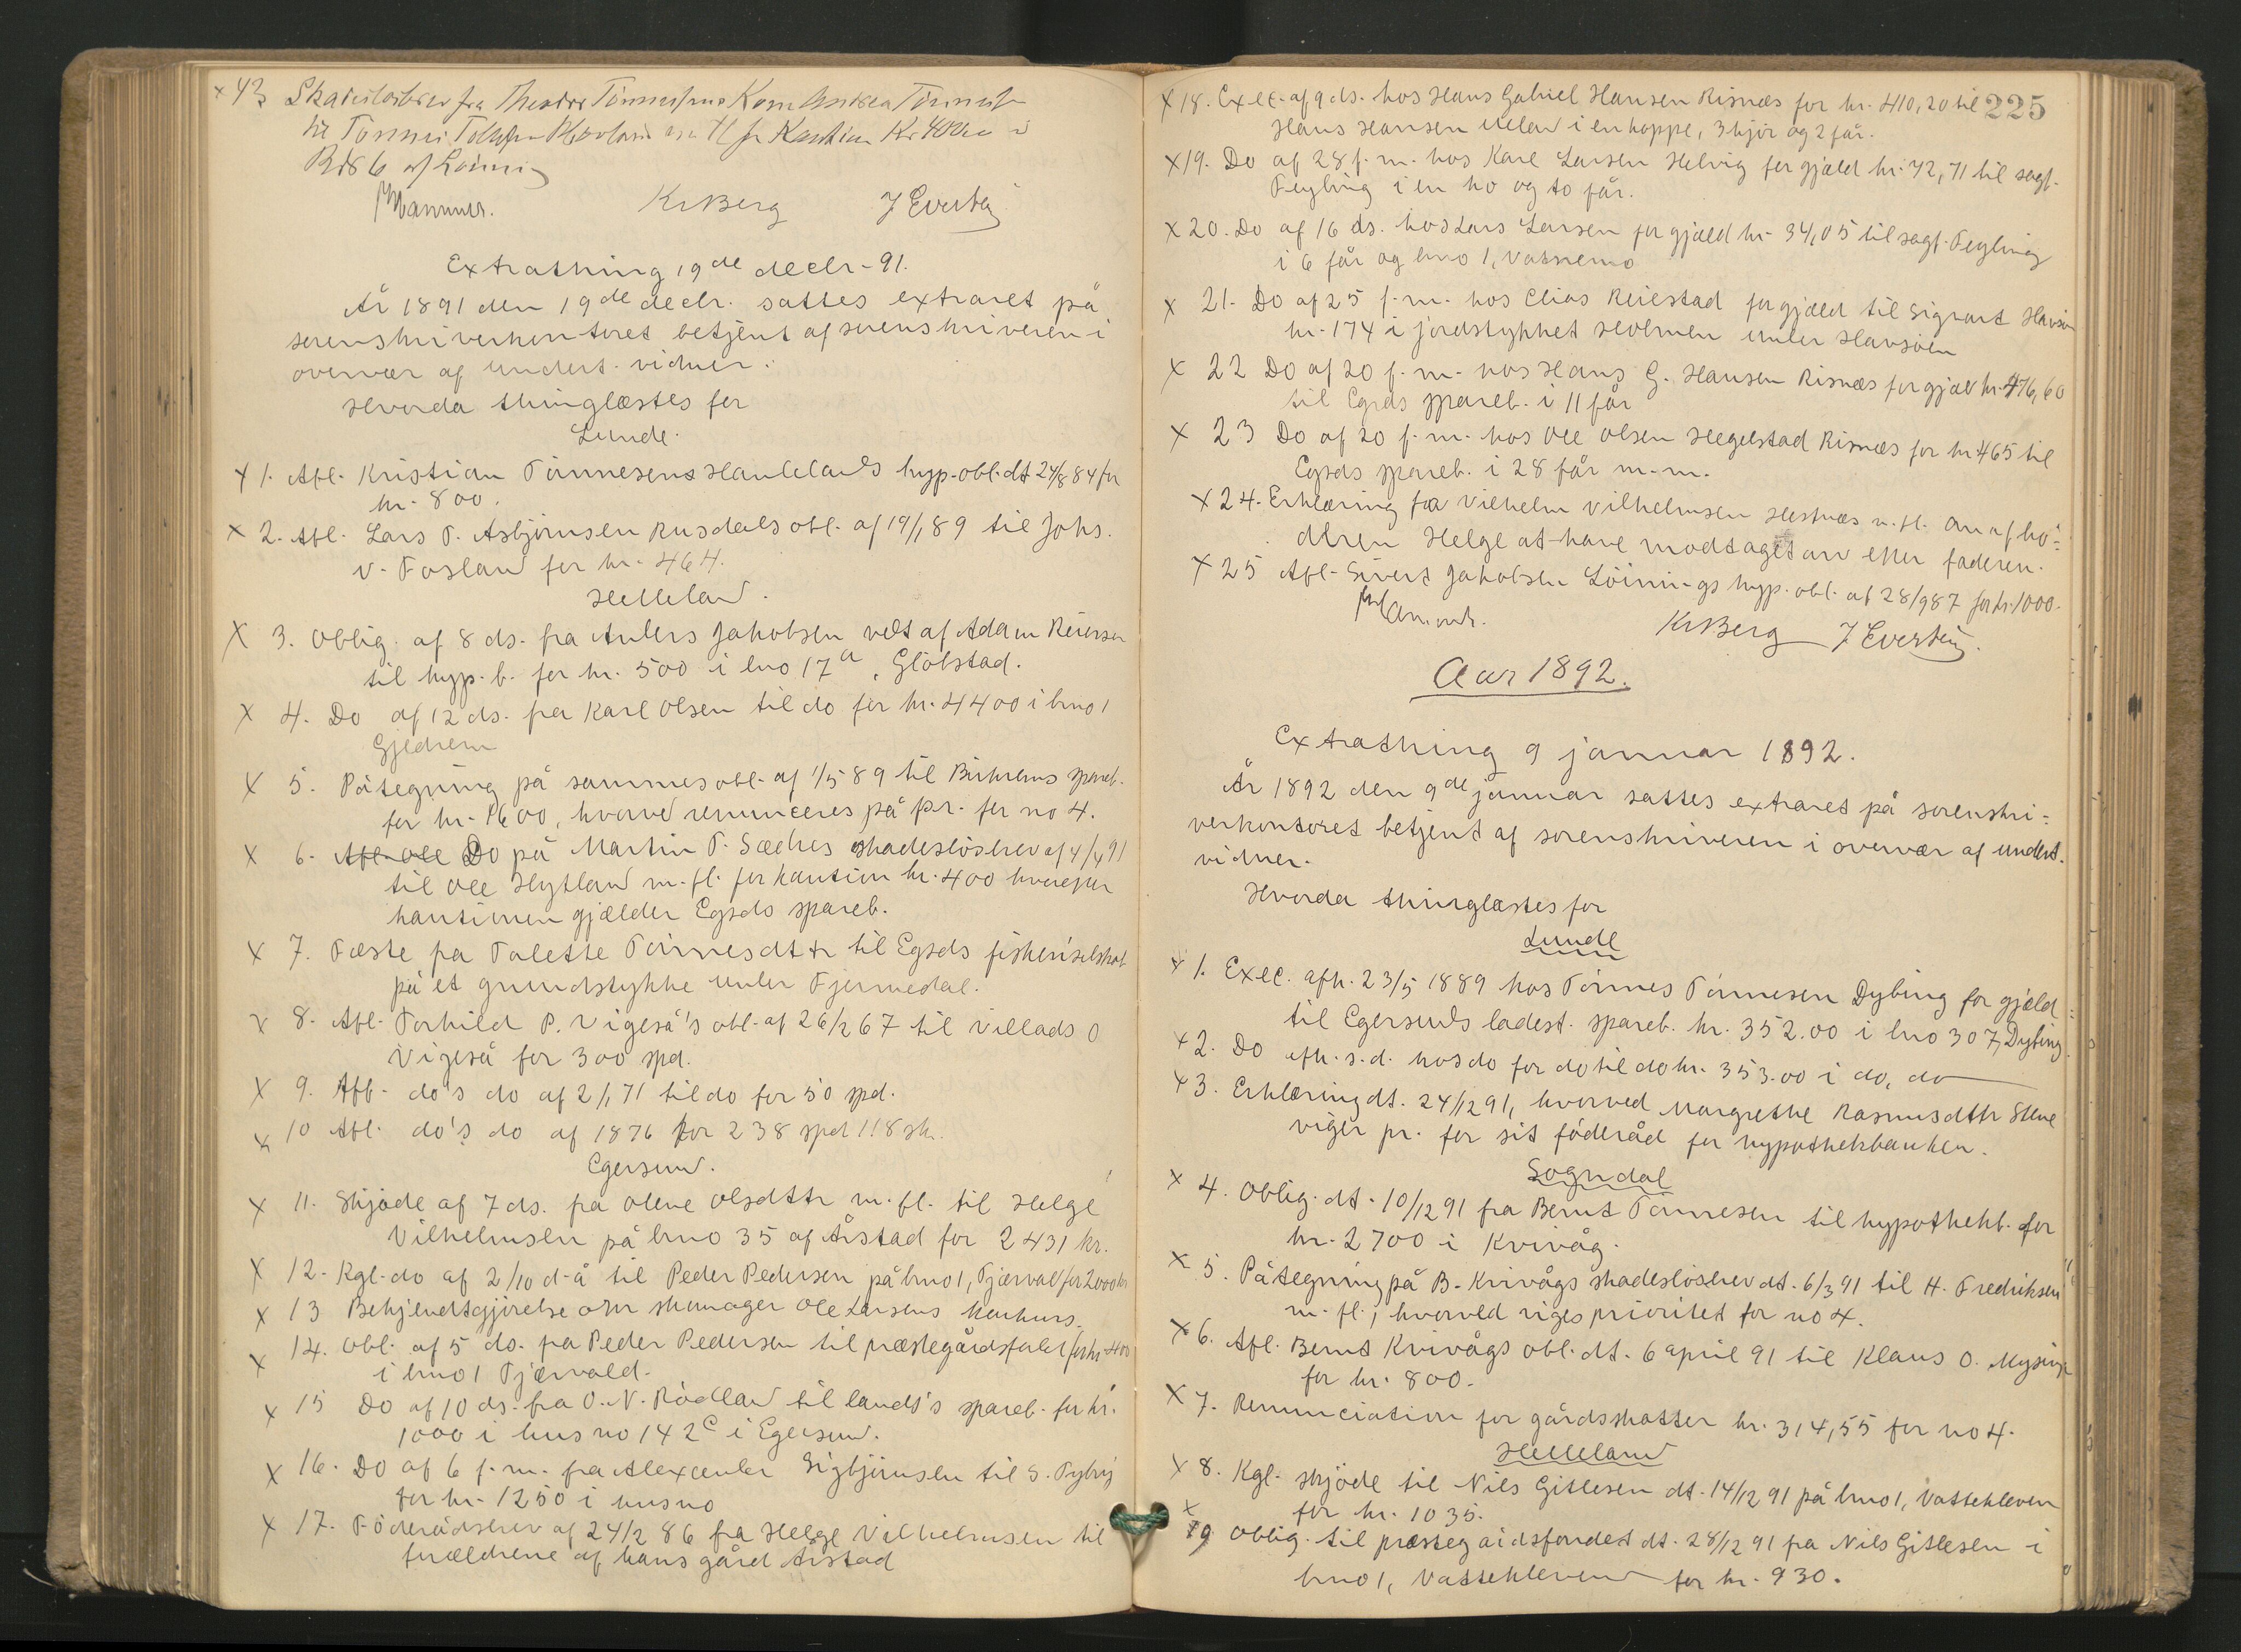 x 43 Skadesløsbrev fra Theodor Tønnesens Kone Andrea Tønnesd
til Tønnes Tollefsen for Kaution Kr 400 i
Bds 6 af Løining
KrBerg J Everts
Extrathing 19de decbr-91.
År 1891 den 19de decbr. sattes extraret på
sorenskriverkontoret betjent af sorenskriveren i
overvær af undert. vidner.
Hvorda thinglæstes for
Lunde.
x 1. Afl. Kristian Tönnesens Haulelands hyp.obl. dt 24/8 84 for
kr. 800.
x 2. Afl. Lars T. Asbjörnsen Rusdals obl. af 19/1 89 til Johs.
V. Fosland for kr. 464.
Helleland.
x 3. Oblig. af 8 ds. fra Anders Jakobsen vedt. af Adam Reiersen
til hyp.b. for kr. 500 i bno 17a, Glöbstad.
x 4. Do af 12 ds. fra Karl Olsen til do for kr. 4400 i bno 1
Gjedrem
x 5. Påtegning på sammes obl. af 1/5 89 til Birkrems spareb.
for kr. 1600, hvorved renunceres på pr. for no 4.
x 6. Afl. Ole Do på Martin T. Sædres skadeslösbrev af 4/4 91
til Ole Hytland m.fl. for kaution kr. 400 hvorefter
kautionen gjælder Egsds spareb.
x 7. Fæste fra Talette Tönnesdttr til Egsds fiskeriselskab
på et grundstykke under Fjermedal.
x 8. Afl. Torkild P. Vigeså's obl. af 26/2 67 til Villads O
Vigeså for 300 spd.
x 9. Afl. do's do af 2/1 71 til do for 50 spd.
x 10 Afl. do's do af 1876 for 238 spd 118 sk.
Egersund.
x 11. Skjöde af 7 ds. fra Olene Olsdttr m.fl. til Helge
Vilhelmsen på bno 35 af Årstad for 2431 kr.
x 12. Kgl. do af 2/10 d.å. til Peder Pedersen på bno 1, Tjærvald for 2000 kr
x 13 Bekjendtgjörelse om skomager Ole Larsens konkurs.
x 14. Obl. af 5 ds. fra Peder Pedersen til præstegårdsfondet for kr 400
i bno 1 Tjærvald.
x 15 Do af 10 ds. fra O. N. Rödland til lands's spareb. for kr.
1000 i hus no 142c i Egersund.
x 16. Do af 6 f.m. fra Alexander Sigbjörnsen til S.
for kr. 1250 i hus no
x 17. Föderådsbrev af 24/2 86 fra Helge Vilhelmsen til
forældrene af hans gård Årstad
225
x 18. Exec. af 9 ds. hos Hans Gabriel Hansen Risnæs for kr. 410,20 til
Hans Hansen i en hoppe, 3 kjör og 2 får.
x 19. Do af 28 f.m. hos Karl Larsen Helvig for gjæld kr. 42,71 til sagf.
Feyling i en ko og to får.
x 20. Do af 16 ds. hos Lars Larsen for gjæld kr. 34,05 til sagf. Feyling
i 6 får og bno 1, Vatnemo
x 21. Do af 25 f.m. hos Elias Reiestad for gjæld til Sigvart Havsö
kr. 174 i jordstykket Holmen under Havsöen
x 22 Do af 20 f.m. hos Hans G. Hansen Risnæs for gjæld kr. 476,60
til Egsds spareb. i 11 får
x 23 Do af 20 f.m. hos Ole Olsen Hegelstad Risnæs for kr 465 til
Egsds spareb. i 28 får m.m.
x 24. Erklæring fra Vilhelm Vilhelmsen Hestnes m.fl. om af bro=
deren Helge at have modtaget arv efter faderen.
x 25 Afl. Sivert Jakobsen Löinings hyp. obl. af 28/9 87 for kr. 1000.
KrBerg J Everts
Aar 1892.
Extrathing 9 januar 1892.
År 1892 den 9de januar sattes extraret på sorenskri=
verkontoret betjent af sorenskriveren i overvær af undert.
vidner.
Hvorda thinglæstes for
Lunde
x 1. Exec. afh. 23/5 1889 hos Tönnes Tönnesen Dybing for gjæld
til Egersunds ladest. spareb. kr. 352.00 i bno 307, Dybing.
x 2. Do afh. s.d. hos do for do til do kr. 353.00 i do, do
x 3. Erklæring dt. 24/12 91, hvorved Margrethe Rasmusdttr Stene
viger pr. for sit föderåd for hypothekbanken.
Sogndal
x 4. Oblig. dt. 10/12 91 fra Bernt Tönnesen til hypothekb. for
kr. 2700 i Kvivåg.
x 5. Påtegning på B. Kvivågs skadeslösbrev dt. 6/3 91 til H. Fredriksen
m.fl., hvorved viges prioritet for no 4.
x 6. Afl. Bernt Kvivågs obl. dt. 6 april 91 til Klaus O. Mysinge
for kr. 800.
x 7. Renunciation for gårdsskatter kr. 314,55 for no 4.
Helleland
x 8. Kgl. skjöde til Nils Gitlesen dt. 14/12 91 på bno 1, Vattekleven
for kr. 1035.
x 9 Oblig. til præstegårdsfondet dt. 28/12 91 fra Nils Gitlesen i
bno 1, Vattekleven for kr. 930.